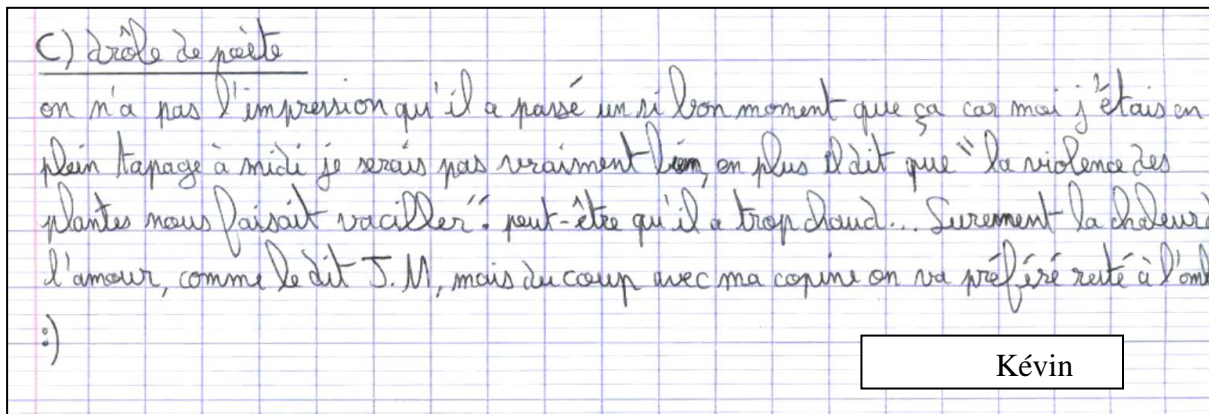 C) drôle de poète
on n'a pas l'impression qu'il a passé un si bon moment que ça car moi j'étais en
plein tapage à midi je serais pas vraiment bien, en plus il dit que "la violence des
plantes nous faisait vaciller". peut-être qu'il a trop chaud... Surement la chaleur d
l'amour, comme le dit J.M, mais du coup avec ma copine on va préféré resté à l'omb
:)
Kévin